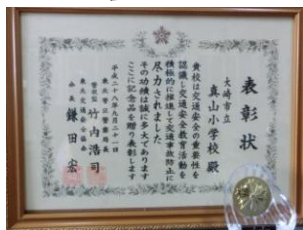 表彰状
大崎市立
真山小学校殿
貴校は交通安全の重要性を
認識し交通安全教育活動を
積極的に推進して交通事故防止に
尽力されました
その功績は誠に多大であります
ここに記念品を贈り表彰します
平成二十八年九月二十一日
東北管区警察局長
警視監 竹内浩司
東北交通安全協会
会長 鎌田宏